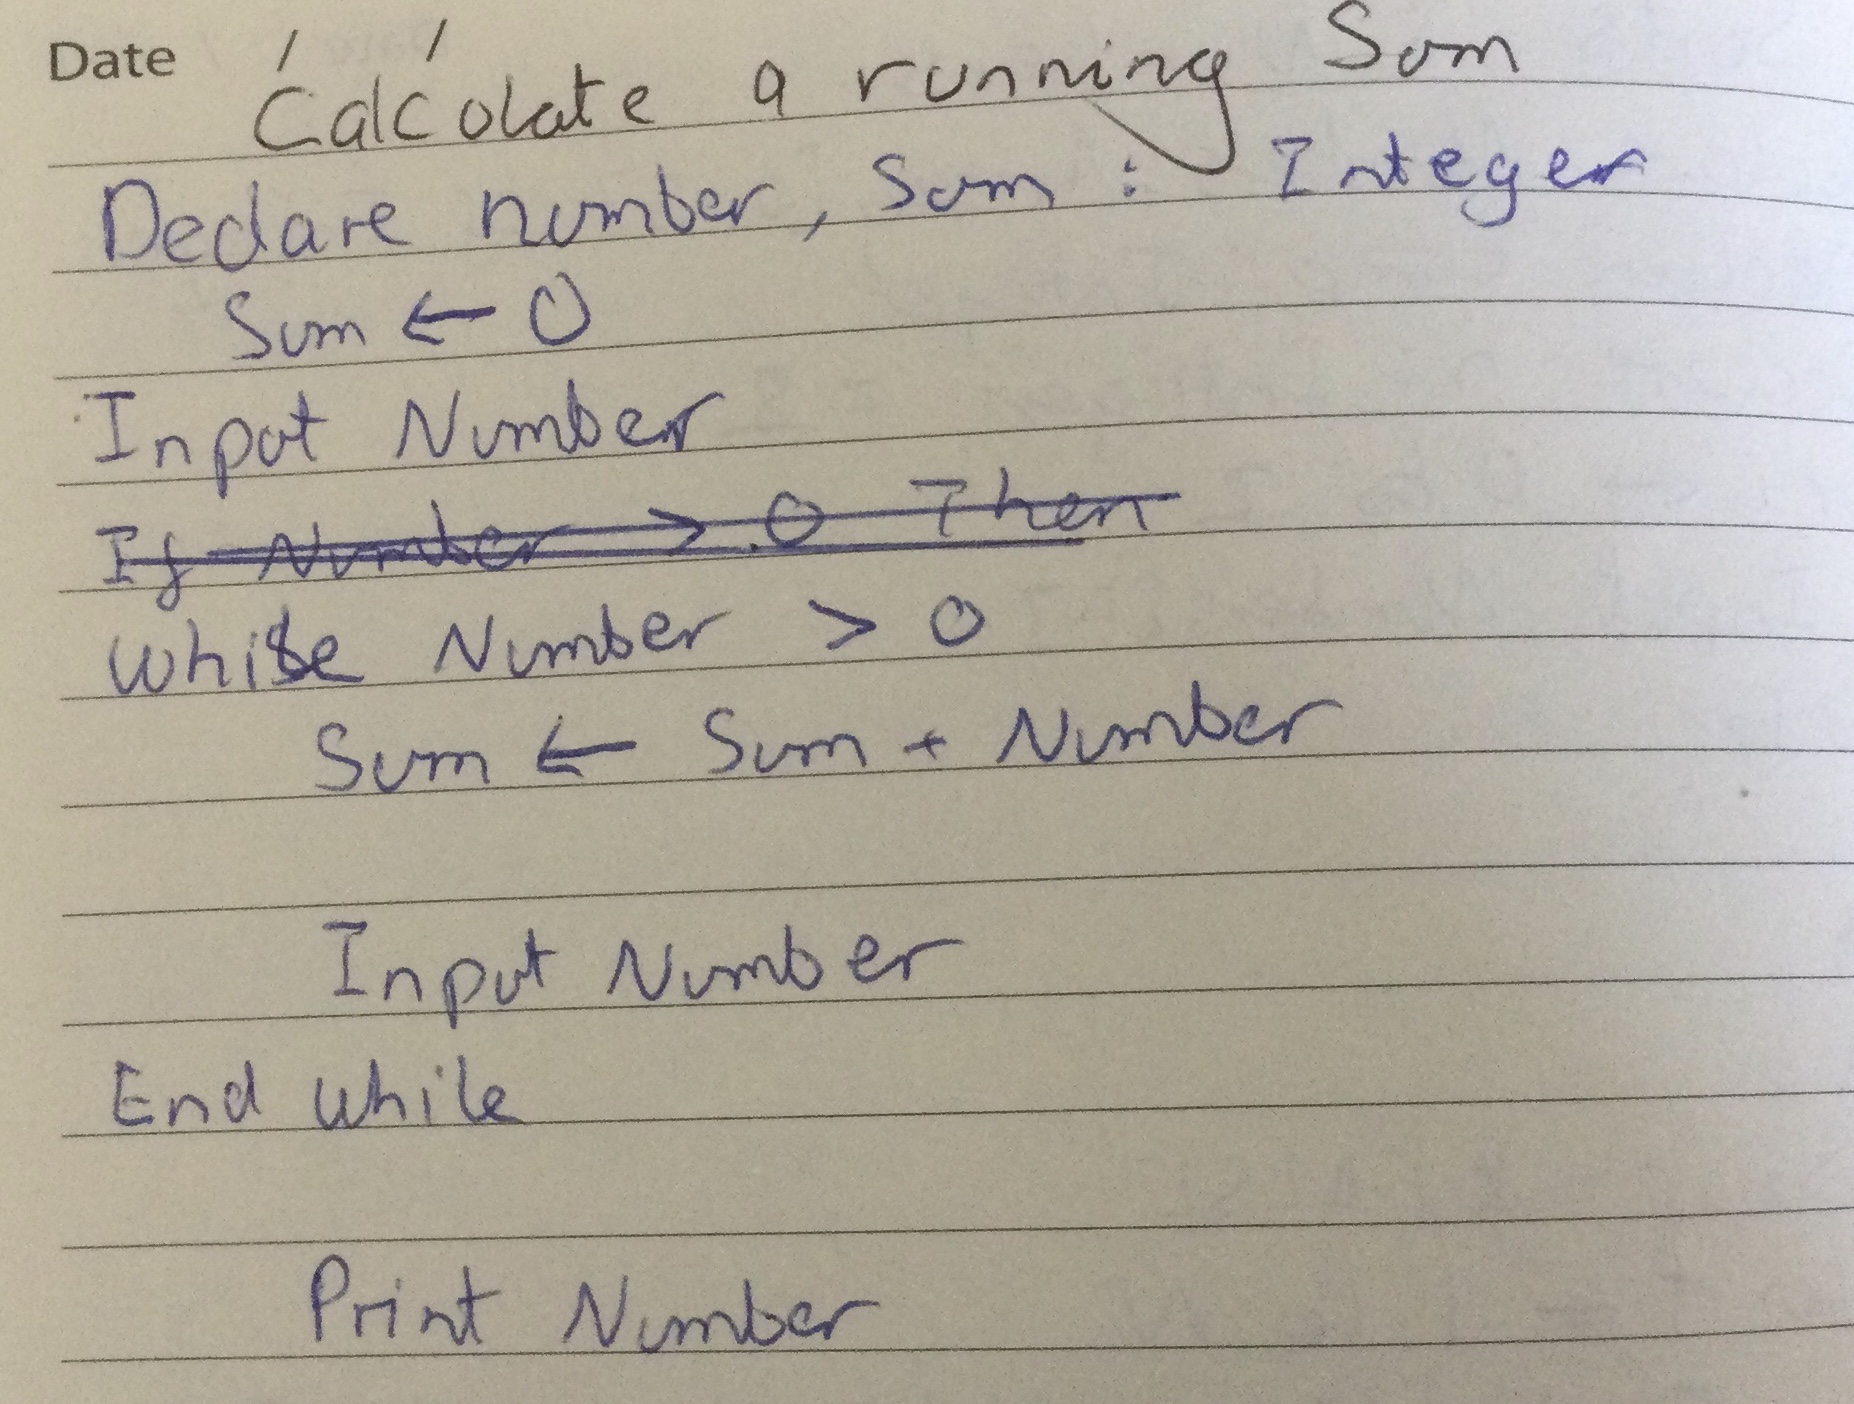 Date / /
Calculate a running Sum
Declare number, Sum : Integer
Sum ← 0
Input Number
If Number > 0 Then
While Number > 0
Sum ← Sum + Number
Input Number
End While
Print Number